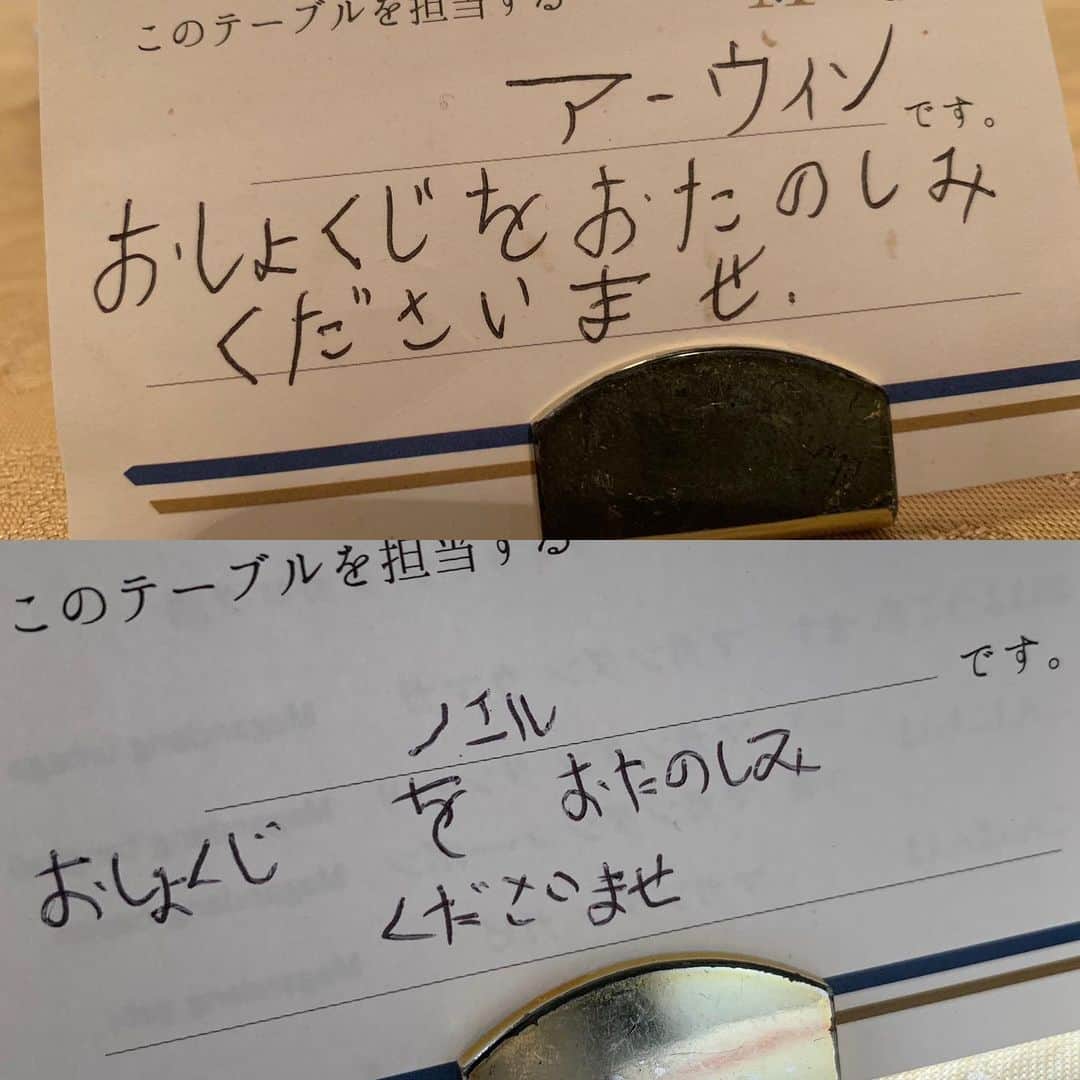 このテーブルを担当する
アーウィン です。
おしょくじをおたのしみ
くださいませ.
このテーブルを担当する
ノエル です。
おしょくじ を おたのしみ
くださいませ